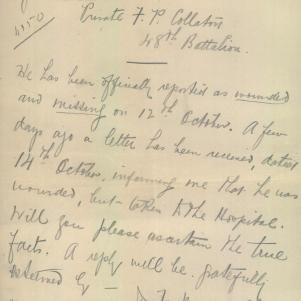 4350
Private F. P. Collaton
48th Battalion.
He has been officially reported as wounded
and missing on 12th October. A few
days ago a letter has been received, dated
14th October, informing me that he was
wounded, but taken to the Hospital.
Will you please ascertain the true
facts. A reply will be gratefully
esteemed by —